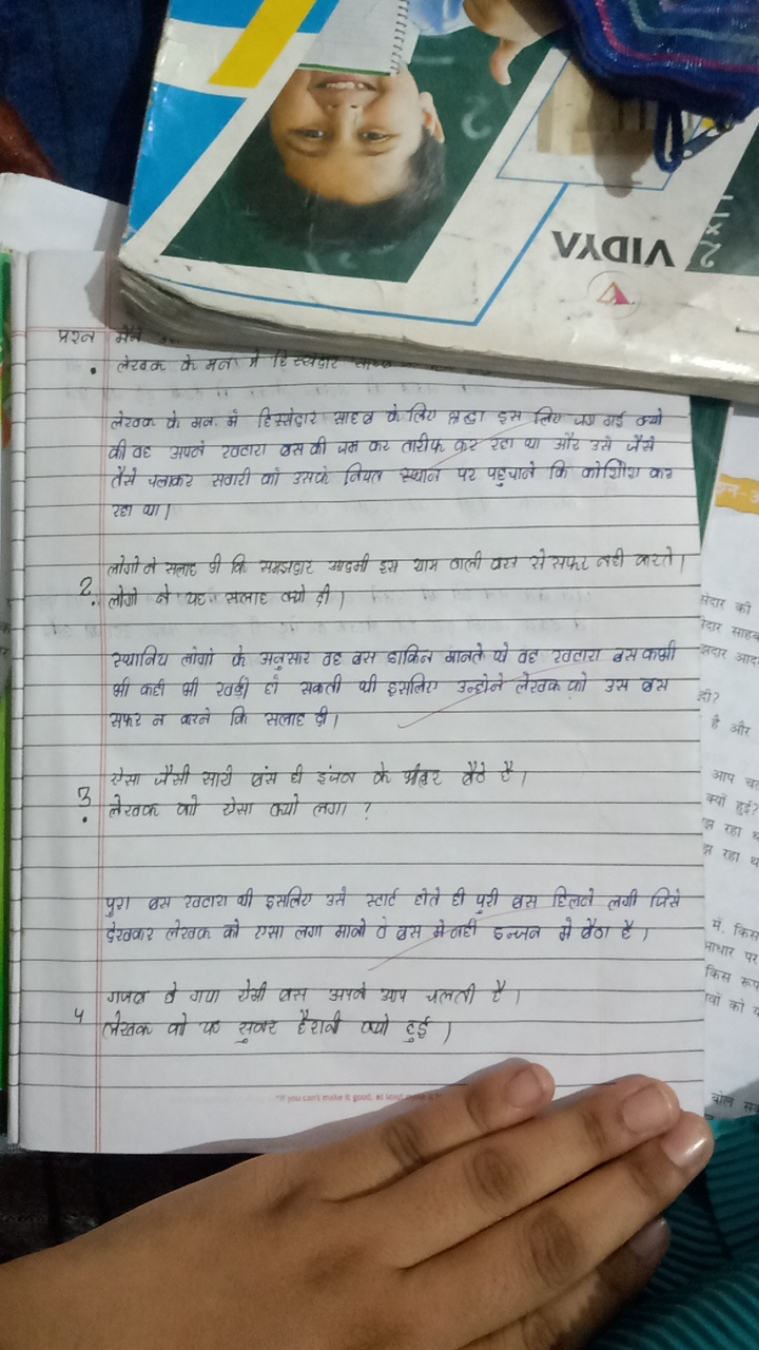 VIDYA
प्रश्न मैंने
लेखक के मन मे हिस्सेदार
लेखक के मन मे हिस्सेदार साहब के लिए श्रद्धा इस लिए जग गई क्यो
की वह अपने खटारा बस की जम कर तारीफ कर रहा था और उसे जैसे
तैसे चलाकर सवारी को उसके नियत स्थान पर पहुचाने कि कोशिश कर
रहा था।
लोगो ने सलाह दी कि समझदार आदमी इस शाम वाली बस से सफर नही करते।
2. लोगो ने यह सलाह क्यो दी।
स्थानिय लोगो के अनुसार वह बस डाकिन मानते थे वह खटारा बस कभी
भी कही भी खड़ी हो सकती थी इसलिए उन्होने लेखक को उस बस
सफर न करने कि सलाह दी।
ऐसा जैसी सारी बस ही इंजन के भीतर बैठे है।
3. लेखक को ऐसा क्यो लगा ?
पुरा बस खटारा थी इसलिए उसे स्टार्ट होते ही पुरी बस हिलने लगी जिसे
देखकर लेखक को एसा लगा मानो वे बस मे नही इन्जन मे बैठा है।
गजब हो गया ऐसी बस अपने आप चलती है।
4 लेखक को यह सुनकर हैरानी क्यो हुई।
"If you can't make it good, at least make it
सेदार की
साहब
आद
दी?
है और
आप
क्यों हुई?
रहा
रहा थ
में. किस
आधार पर
किस रूप
को
बोल